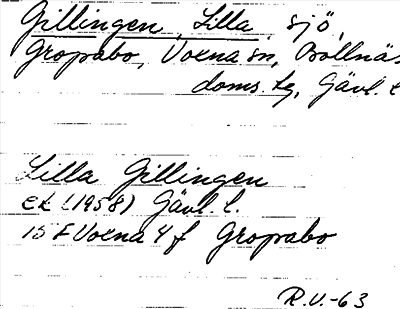 Gillingen, Lilla, sjö,
Gropabo, Voxna sn, Bollnäs
doms. tg, Gävl. l
Lilla Gillingen
ek (1958) Gävl. l.
15 F Voxna 4 f Gropabo
R.V.-63